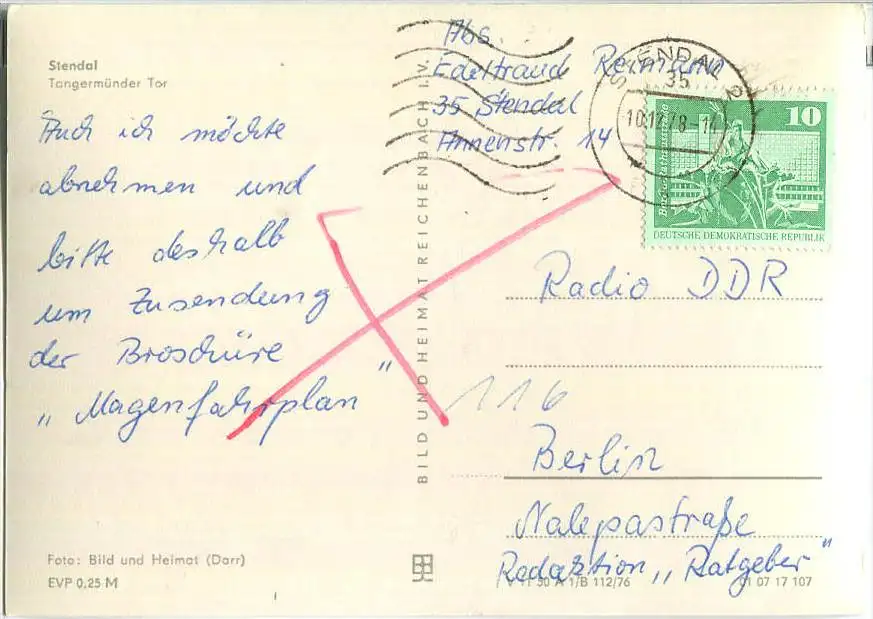 Stendal
Tangermünder Tor
Auch ich möchte
abnehmen und
bitte deshalb
um Zusendung
der Broschüre
„Magenfahrplan"
Foto: Bild und Heimat (Darr)
EVP 0,25 M
BILD UND HEIMAT REICHENBACH I. V.
Abs.
Edeltraud Reimann
35 Stendal
Annenstr. 14
STENDAL 2
35
10
DEUTSCHE DEMOKRATISCHE REPUBLIK
Radio DDR
116
Berlin
Nalepastraße
Redaktion „Ratgeber"
V 11 50 A 1/B 112/76
01 07 17 107